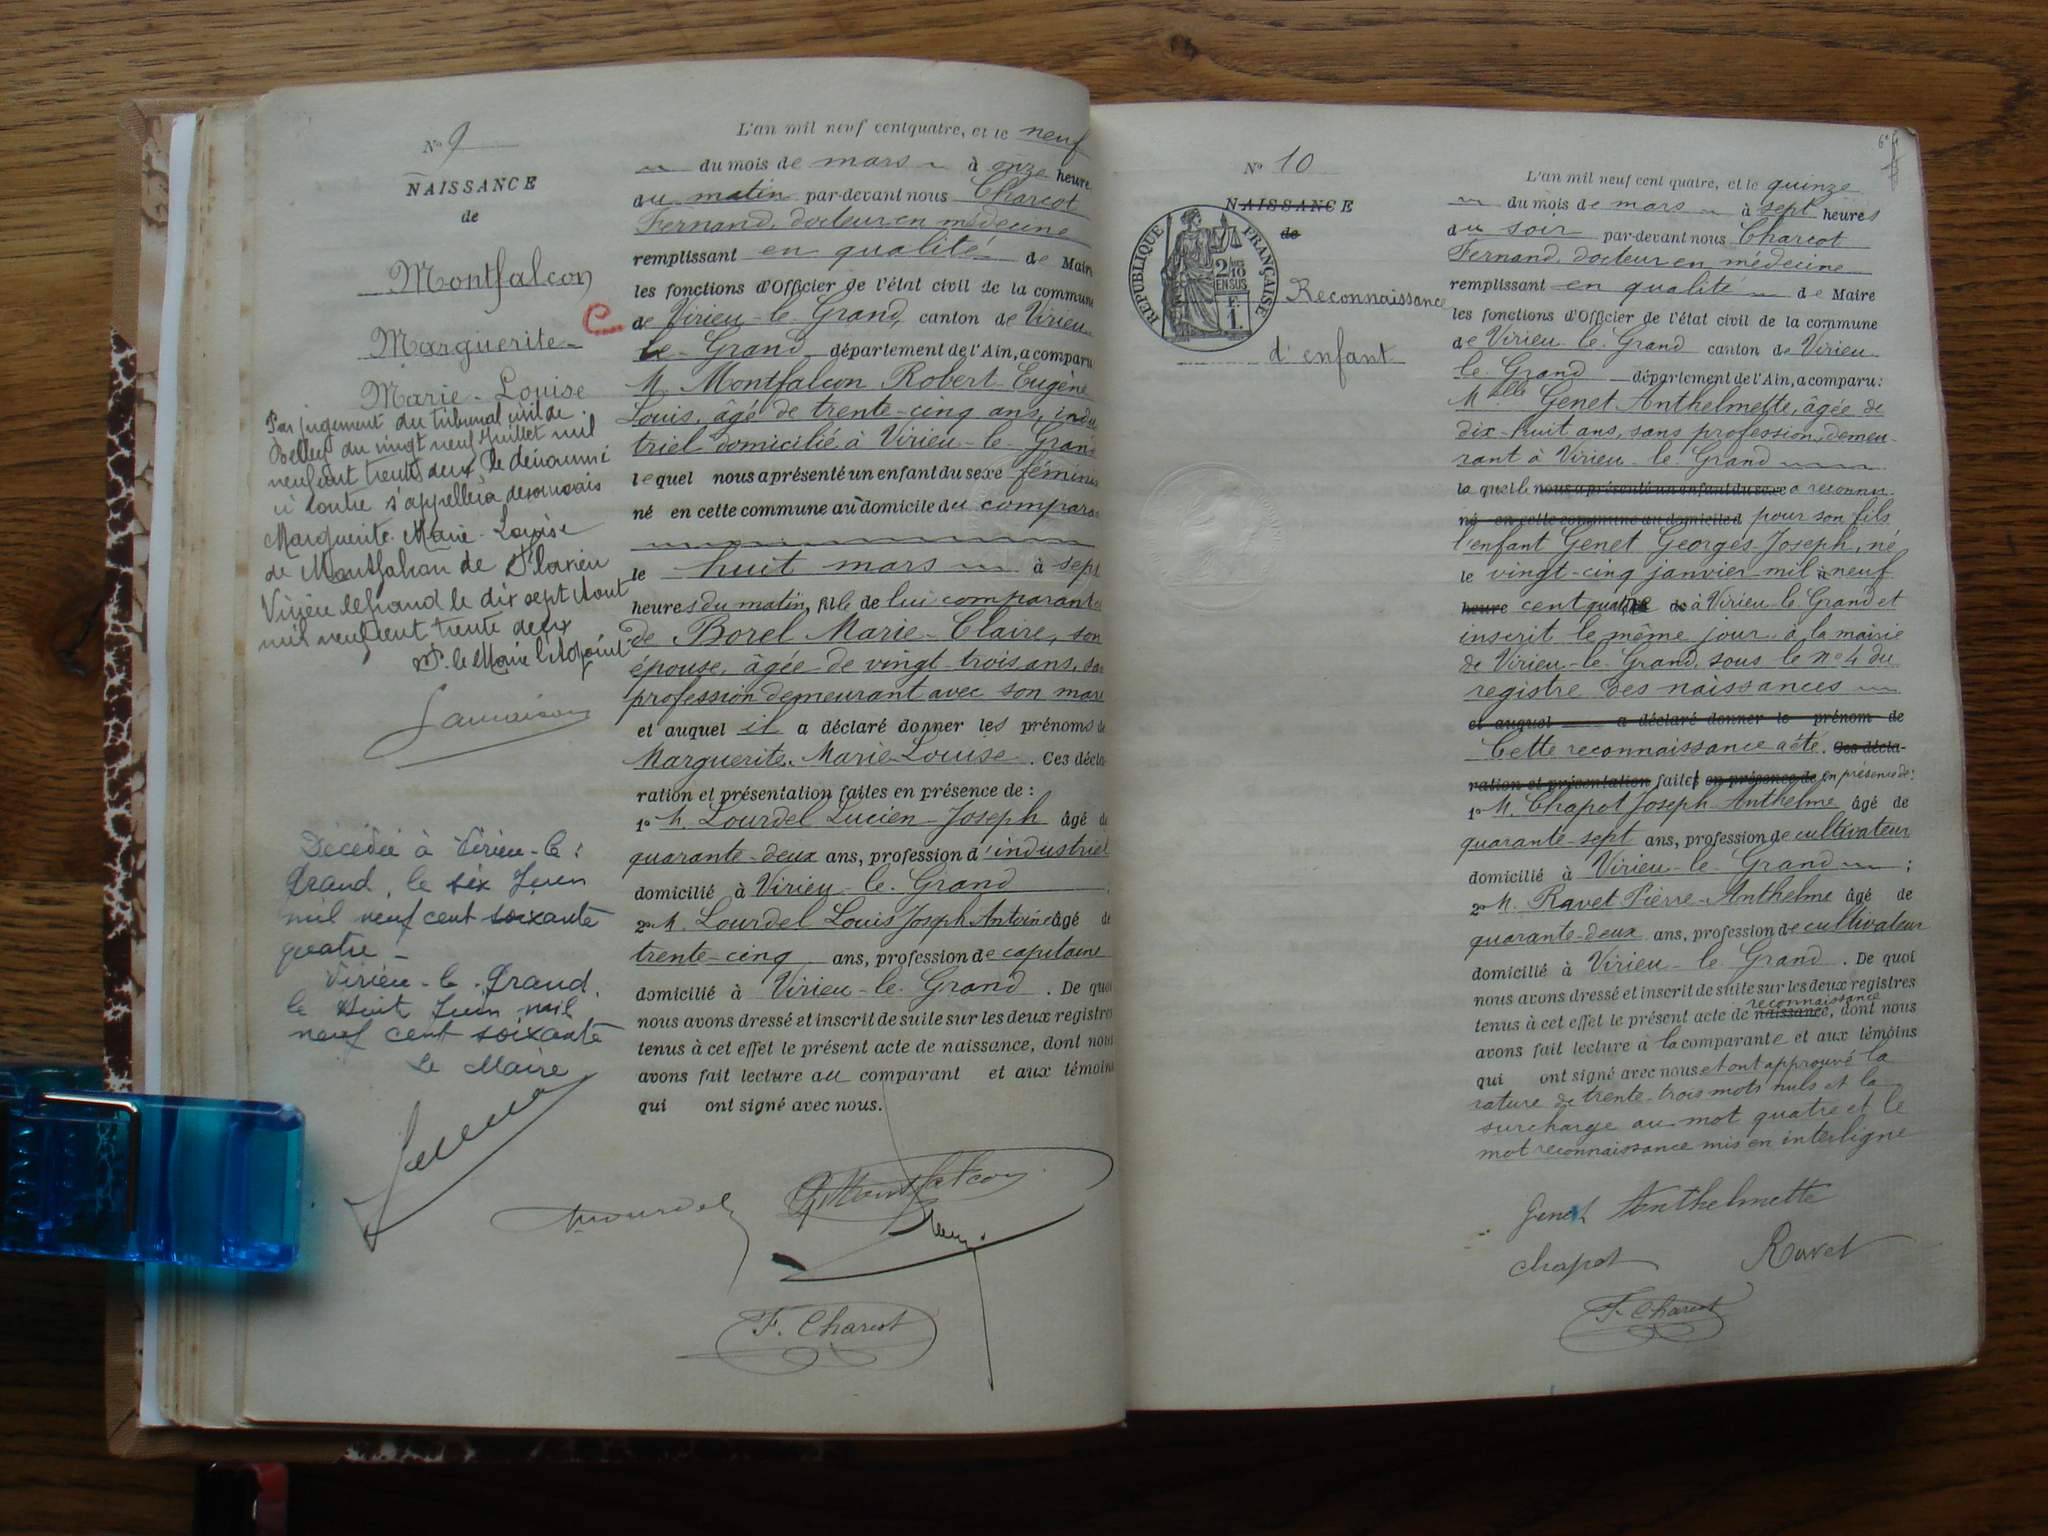 Nº 9
NAISSANCE
de
Montfalcon
Marguerite
Marie-Louise
Par jugement du tribunal civil de
Belley du vingt neuf juillet mil
neuf cent trente deux le dénommé
ci contre s'appellera désormais
Marguerite Marie-Louise
de Montfalcon de Flaxieu
Virieu le grand le dix sept Aout
mil neuf cent trente deux
P. le Maire l'Adjoint
Décédée à Virieu-le-
Grand, le six Juin
mil neuf cent soixante
quatre -
Virieu-le-Grand
le Huit Juin mil
neuf cent soixante
Le Maire
L'an mil neuf cent quatre, et le neuf
du mois de mars à onze heure
du matin par-devant nous Charcot
Fernand, docteur en médecine
remplissant en qualité de Maire
les fonctions d'Officier de l'état civil de la commune
de Virieu-le-Grand, canton de Virieu
le-Grand, département de l'Ain, a comparu
M. Montfalcon Robert-Eugène
Louis, âgé de trente-cinq ans, indus
triel domicilié à Virieu-le-Grand
lequel nous a présenté un enfant du sexe féminin
né en cette commune au domicile du compara
le huit mars à sept
heures du matin, fille de lui comparant et
de Borel Marie-Claire, son
épouse, âgée de vingt-trois ans, sans
profession demeurant avec son mari
et auquel il a déclaré donner les prénoms de
Marguerite, Marie-Louise. Ces décla-
ration et présentation faites en présence de :
1º M. Lourdel Lucien-Joseph âgé de
quarante-deux ans, profession d'industriel
domicilié à Virieu-le-Grand ;
2º M. Lourdel Louis Joseph Antoine âgé de
trente-cinq ans, profession de capitaine
domicilié à Virieu-le-Grand. De quoi
nous avons dressé et inscrit de suite sur les deux registres
tenus à cet effet le présent acte de naissance, dont nous
avons fait lecture au comparant et aux témoins
qui ont signé avec nous.
Lourdel
Montfalcon
F. Charcot
Nº 10
NAISSANCE
de
RÉPUBLIQUE FRANÇAISE
2/10
EN SUS
F.
1.
Reconnaissance
d'enfant
L'an mil neuf cent quatre, et le quinze
du mois de mars à sept heures
du soir par-devant nous Charcot
Fernand, docteur en médecine
remplissant en qualité de Maire
les fonctions d'Officier de l'état civil de la commune
de Virieu-le-Grand canton de Virieu
le-Grand département de l'Ain, a comparu :
Melle Genet Anthelmette, âgée de
dix-huit ans, sans profession, demeu-
rant à Virieu-le-Grand
laquelle nous a présenté un enfant du sexe a reconnu
né en cette commune au domicile d pour son fils
l'enfant Genet Georges-Joseph, né
le vingt-cinq janvier mil à neuf
heure cent quatre de à Virieu-le-Grand et
inscrit le même jour à la mairie
de Virieu-le-Grand, sous le nº 4 du
registre des naissances
et auquel a déclaré donner le prénom de
Cette reconnaissance a été. Ces décla-
ration et présentation faites en présence de en présence de :
1º M. Chapot Joseph-Anthelme âgé de
quarante-sept ans, profession de cultivateur
domicilié à Virieu-le-Grand ;
2º M. Ravet Pierre-Anthelme âgé de
quarante-deux ans, profession de cultivateur
domicilié à Virieu-le-Grand. De quoi
nous avons dressé et inscrit de suite sur les deux registres
reconnaissance
tenus à cet effet le présent acte de naissance, dont nous
avons fait lecture à la comparante et aux témoins
qui ont signé avec nous et ont approuvé la
rature de trente-trois mots nuls et la
surcharge au mot quatre et le
mot reconnaissance mis en interligne
Genet Anthelmette
Chapot
Ravet
F. Charcot